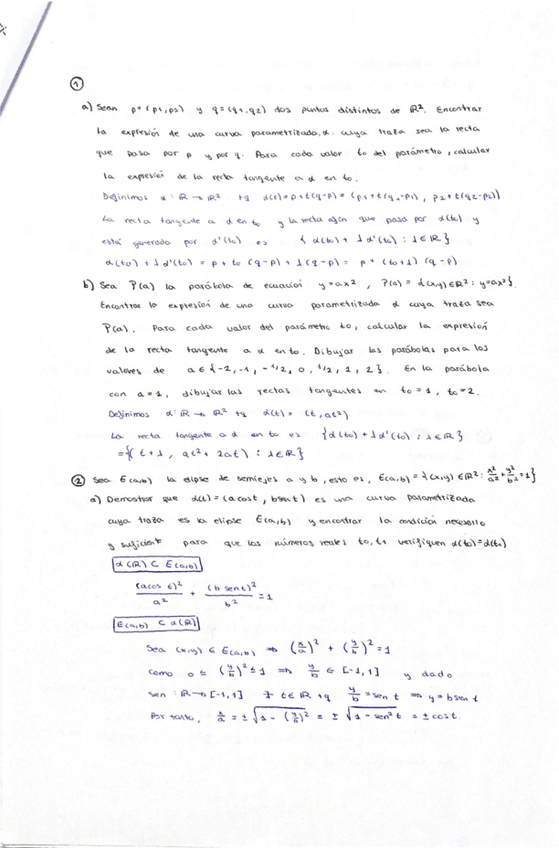 ①
a) Sean p=(p1,p2) y q=(q1,q2) dos puntos distintos de ℝ². Encontrar
la expresión de una curva parametrizada α cuya traza sea la recta
que pasa por p y por q. Para cada valor to del parámetro, calcular
la expresión de la recta tangente a α en to.
Definimos α: ℝ → ℝ² tq α(t)=p+t(q-p)=(p1+t(q1-p1), p2+t(q2-p2))
La recta tangente a α en to y la recta afín que pasa por α(to) y
está generada por α'(to) es { α(to) + λ α'(to) : λ∈ℝ }
α(to) + λ α'(to) = p + to (q-p) + λ(q-p) = p + (to+λ) (q-p)
b) Sea P(a) la parábola de ecuación y=ax², P(a) = {(x,y)∈ℝ²: y=ax²}.
Encontrar la expresión de una curva parametrizada α cuya traza sea
P(a). Para cada valor del parámetro to, calcular la expresión
de la recta tangente a α en to. Dibujar las parábolas para los
valores de a∈{-2,-1,-1/2,0,1/2,1,2}. En la parábola
con a=1, dibujar las rectas tangentes en to=1, to=2.
Definimos α: ℝ → ℝ² tq α(t)= (t, at²)
La recta tangente a α en to es {α(to) + λα'(to) : λ∈ℝ}
={(t+λ, at²+2at) : λ∈ℝ}
② Sea E(a,b) la elipse de semiejes a y b, esto es, E(a,b)={(x,y)∈ℝ²: x²/a²+y²/b²=1}
a) Demostrar que α(t)=(a cost, b sent) es una curva parametrizada
cuya traza es la elipse E(a,b) y encontrar la condición necesaria
y suficiente para que los números reales to,t1 verifiquen α(to)=α(t1)
α(ℝ) ⊂ E(a,b)
(a cos t)²/a² + (b sen t)²/b² = 1
E(a,b) ⊂ α(ℝ)
Sea (x,y) ∈ E(a,b) ⇒ (x/a)² + (y/b)² = 1
Como 0 ≤ (y/b)² ≤ 1 ⇒ y/b ∈ [-1,1] y dado
sen : ℝ→[-1,1] ∃ t∈ℝ tq y/b = sen t ⇒ y = b sen t
Por tanto, x/a = ± √(1 - (y/b)²) = ± √(1 - sen² t) = ± cos t.